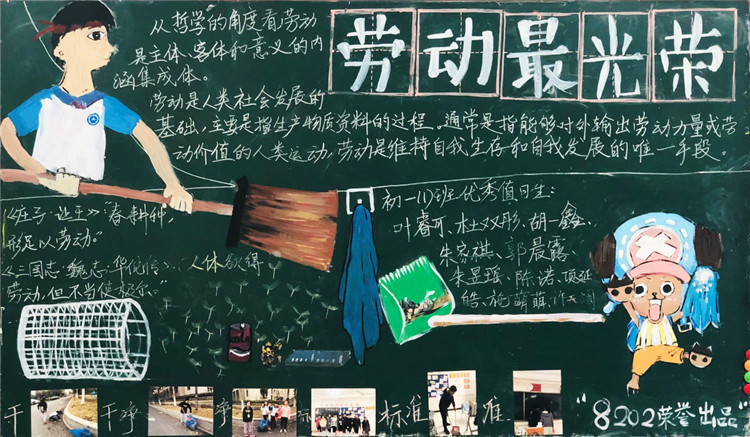 劳动最光荣
从哲学的角度看劳动
是主体、客体和意义的内
涵集成体。
劳动是人类社会发展的
基础,主要是指生产物质资料的过程。通常是指能够对外输出劳动力量或劳
动价值的人类运动,劳动是维持自我生存和自我发展的唯一手段。
《庄子·让王》"春耕种,
形足以劳动。"
《三国志·魏志·华佗传》:人体欲得
劳动,但不当使极尔。"
初一(1)班优秀值日生:
叶睿可、杜双彤、胡一鑫、
朱宸祺、郭晨露、
朱昱瑶、陈诺、顶延
皓、施萌萌、
cola
干 干净 净 标 标准 准
"8202荣誉出品"